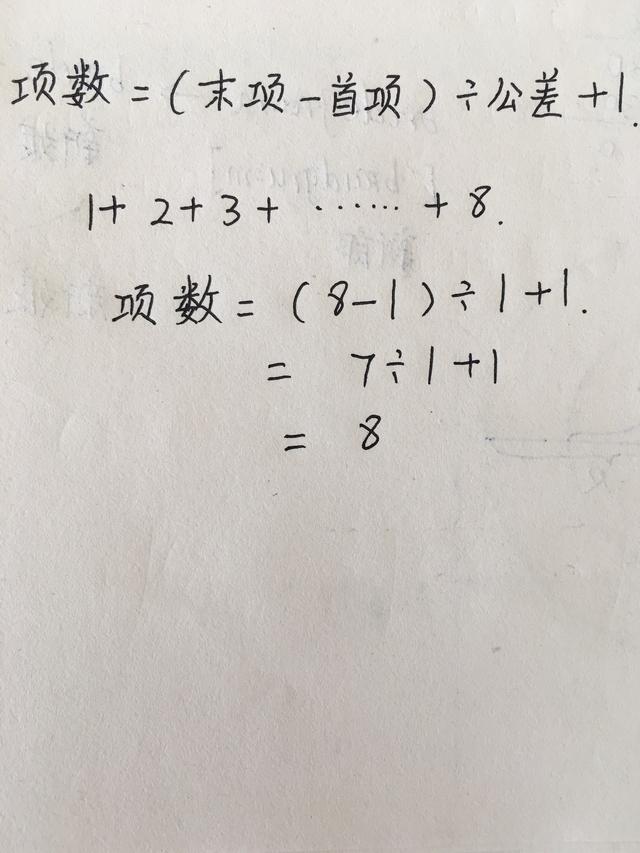 项数=(末项-首项)÷公差+1.
1+2+3+……+8.
项数=(8-1)÷1+1.
=7÷1+1
=8